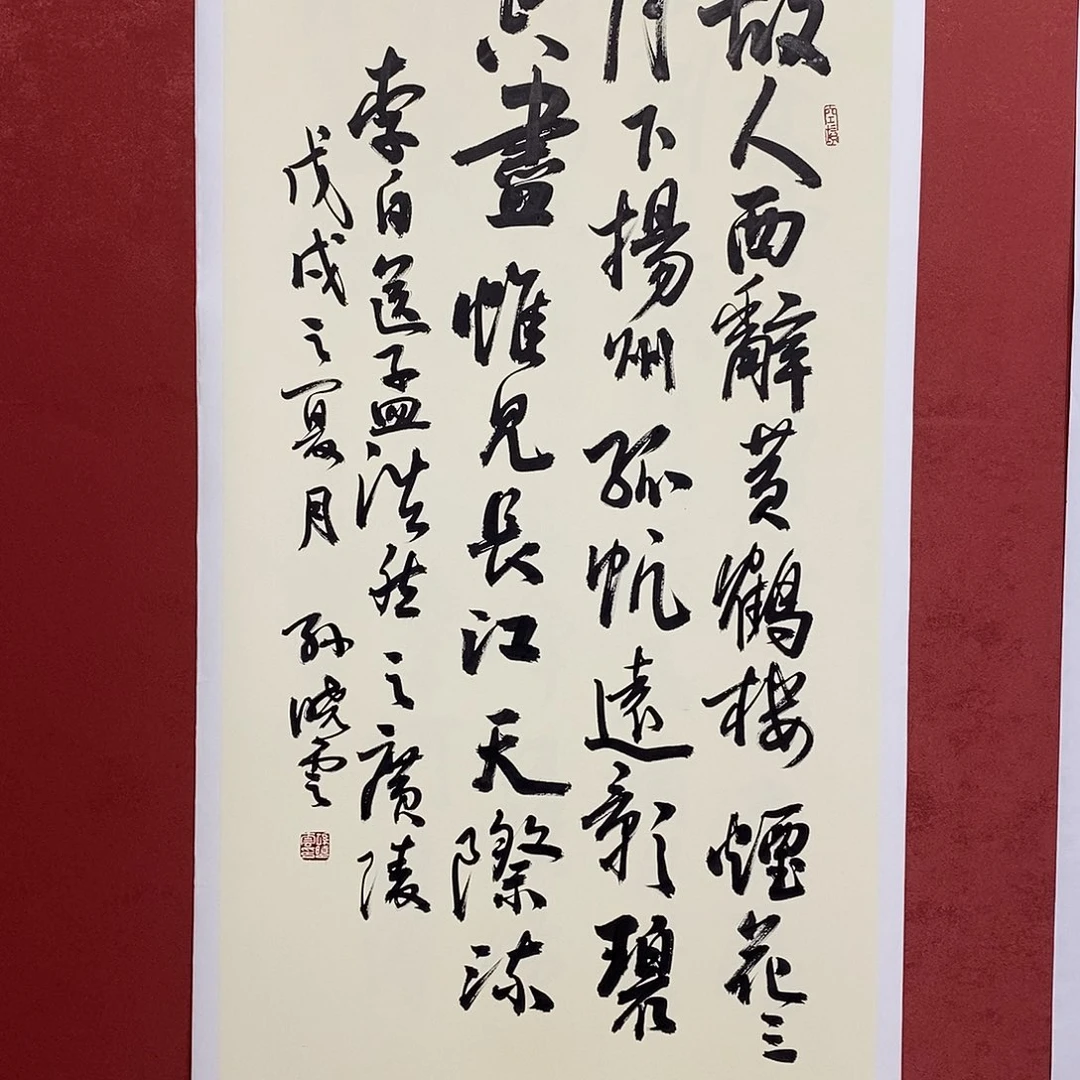 故人西辭黄鶴樓煙花三
月下揚州孤帆遠影碧
空盡惟見長江天際流
李白送孟浩然之廣陵
戊戌之夏月 孫曉雲